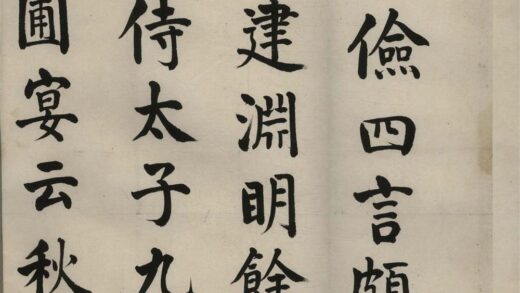 儉四言頗
建淵眀餘
侍太子九
圃宴云秋